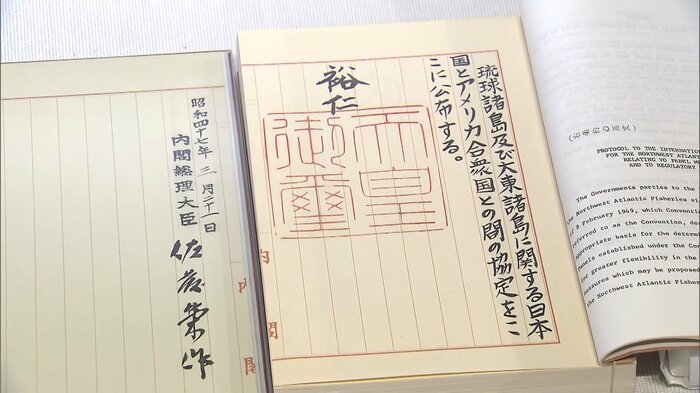 琉球諸島及び大東諸島に関する日本
国とアメリカ合衆国との間の協定をこ
こに公布する。
裕仁
天皇
御璽
内閣
昭和四十七年三月二十一日
内閣総理大臣 佐藤榮作
内閣
PROTOCOL TO THE INTERNATIO
FOR THE NORTHWEST ATLANTI
RELATING TO PANEL ME
AND TO REGULATORY
The Governments parties to the
he Northwest Atlantic Fisheries si
of 8 February 1949, which Convention
referred to as the Convention, des
appropriate basis for the determi
Panels established under the Conv
for greater flexibility in the
measures which may be proposed
the Northwest Atlantic Fisher